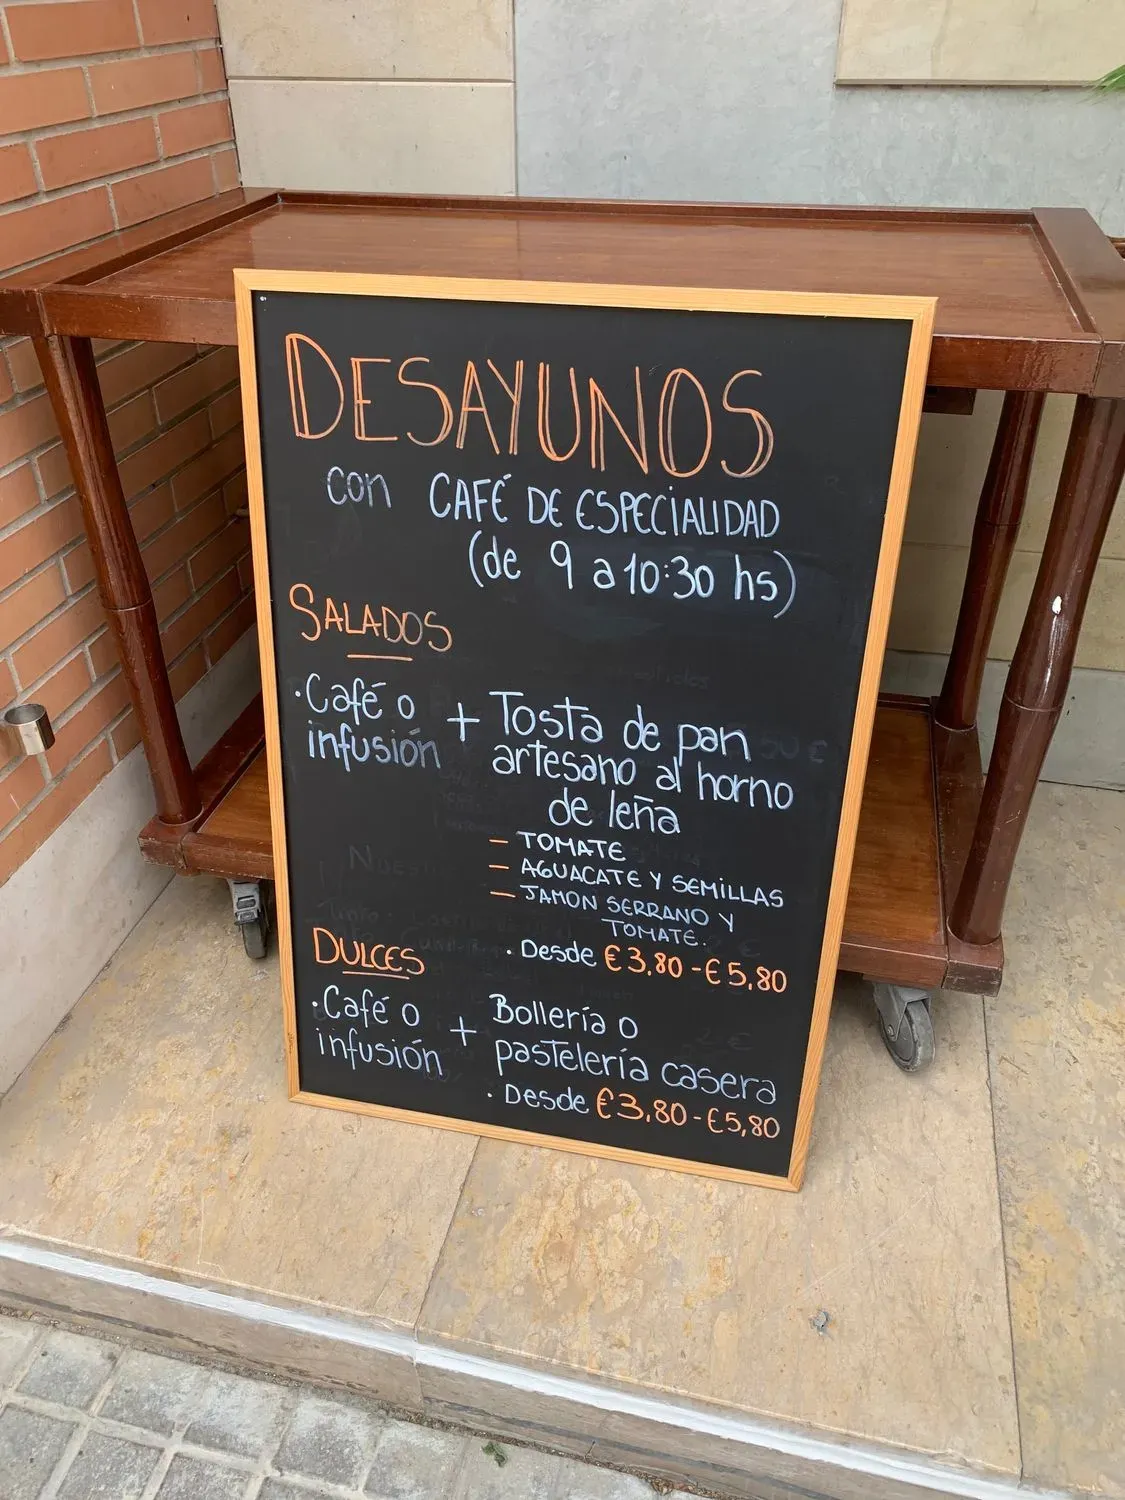 DESAYUNOS
con CAFÉ DE ESPECIALIDAD
(de 9 a 10:30 hs)
SALADOS
·Café o
infusión
+
Tosta de pan
artesano al horno
de leña
- TOMATE
- AGUACATE Y SEMILLAS
- JAMON SERRANO Y
TOMATE.
· Desde €3,80-€5,80
DULCES
·Café o
infusión
+
Bollería o
pastelería casera
· Desde €3,80-€5,80